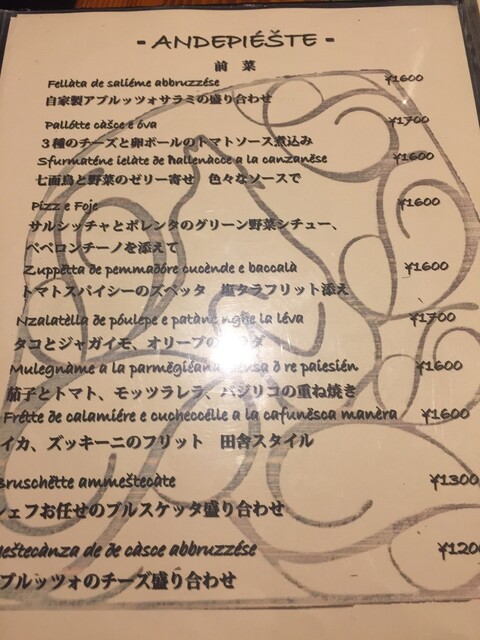 - ANDEPIÉŠTE -
前 菜
Fellàta de saliéme abbruzzése ¥1600
自家製アブルッツォサラミの盛り合わせ
Pallótte càšce e óva ¥1700
3種のチーズと卵ボールのトマトソース煮込み
Sfurmaténe ielàte de hallenàcce a la canzanëse ¥1600
七面鳥と野菜のゼリー寄せ 色々なソースで
Pizz e Foje ¥1600
サルシッチャとポレンタのグリーン野菜シチュー、
ペペロンチーノを添えて
Zuppëtta de pemmaðóre cucènde e baccalà ¥1600
トマトスパイシーのズペッタ 塩タラフリット添え
Nzalatèlla ðe póulepe e patàne nghe la léva ¥1700
タコとジャガイモ、オリーブの ダ
Mulegnàme a la parmëgiéana ensa ð re paiesién ¥1600
茄子とトマト、モッツラレラ、バジリコの重ね焼き
Frétte de calamiére e cucheccélle a la cafunësca manèra ¥1600
イカ、ズッキーニのフリット 田舎スタイル
Bruschëtte ammeštecàte ¥1300
シェフお任せのブルスケッタ盛り合わせ
meštecànza de ðe càsce abbruzzése ¥1200
ブルッツォのチーズ盛り合わせ